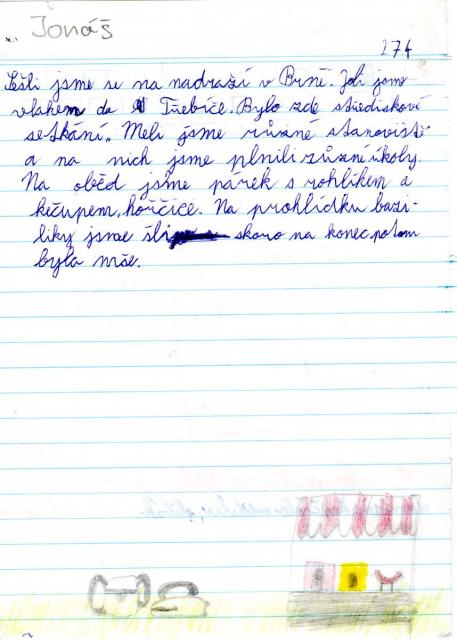 Jonáš
274
Sešli jsme se na nadraží v Brně. Jeli jsme
vlakem do Třebíče. Bylo zde střediskové
setkání. Meli jsme různé stanoviště
a na nich jsme plnili různí úkoly.
Na oběd jsme párek s rohlíkem a
kečupem, hořčice. Na prohlídku bazi-
liky jsme šli skoro na konec, potom
byla mše.